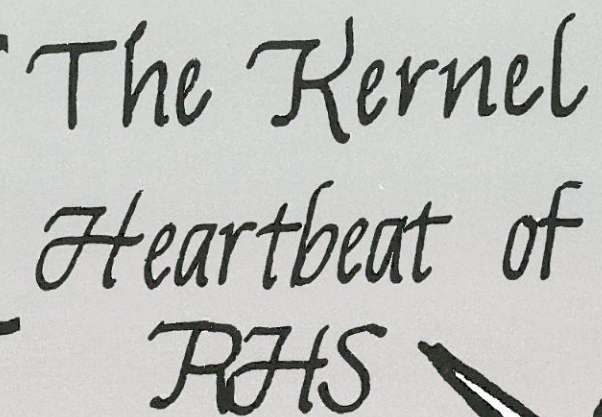 The Kernel
Heartbeat of
RHS